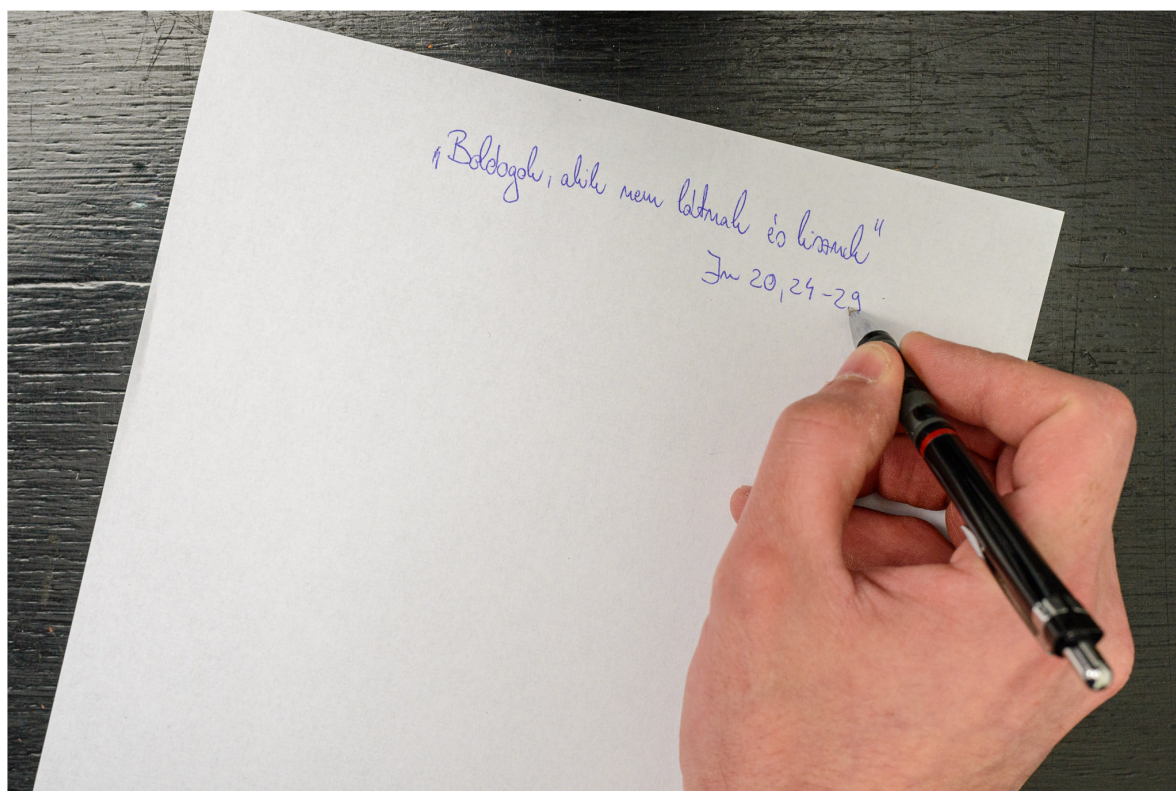 „Boldogok, akik nem látnak és hisznek"
Jn 20,24-29